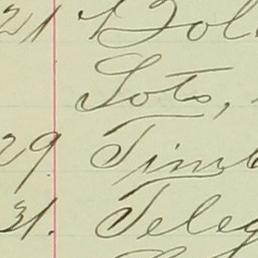 21 Bol
Lots,
29 Timb
31. Teleg